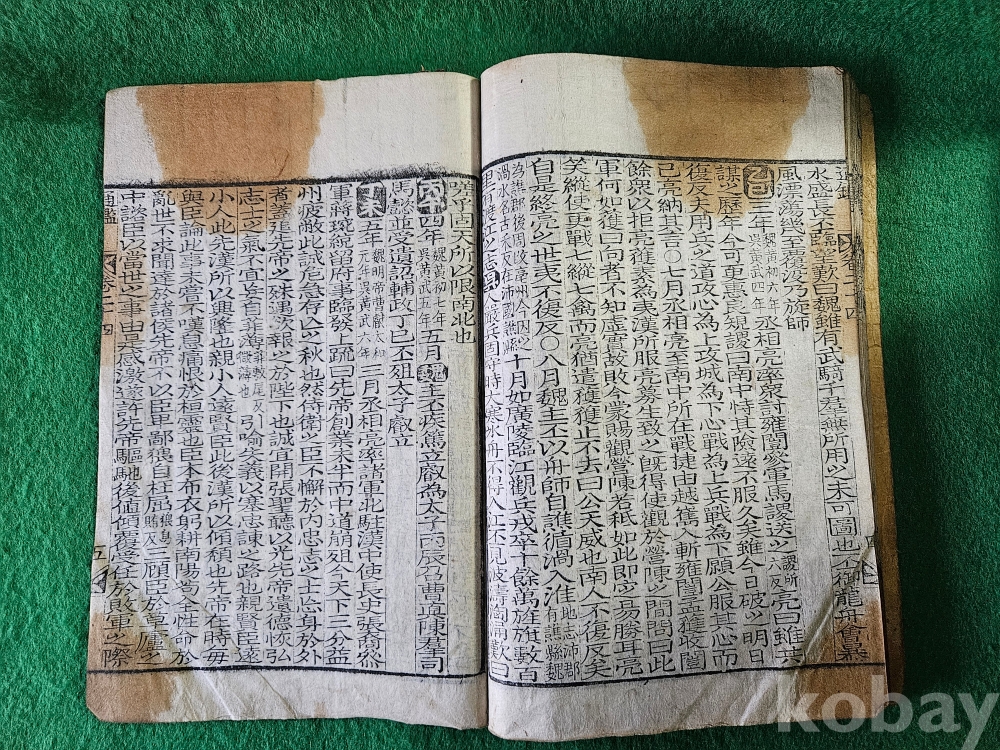 水盛長帝臨望歎曰魏雖有武騎千羣無所用之未可圖也帝御龍舟會暴
風漂蕩幾至覆沒乃旋師
乙巳三年魏黃初六年吳黃武四年丞相亮率衆討雍闓參軍馬謖送之謖所六反亮曰雖共
謀之歷年今可更惠良規謖曰南中恃其險遠不服久矣雖今日破之明日
復反夫用兵之道攻心為上攻城為下心戰為上兵戰為下願公服其心而
已亮納其言○七月丞相亮至南中所在戰捷由越嶲入斬雍闓孟獲收闓
餘衆以拒亮獲素為夷漢所服亮募生致之旣得使觀於營陳之間問曰此
軍何如獲曰向者不知虛實故敗今蒙賜觀營陳若秪如此即定易勝耳亮
笑縱使更戰七縱七禽而亮猶遣獲獲止不去曰公天威也南人不復反矣
自是終亮之世夷不復反○八月魏主丕以舟師自譙循渦入淮地志沛郡有譙縣魏
為譙郡後周改亳州今因之渦水名古禾反在沛國譙縣十月如廣陵臨江觀兵戎卒十餘萬旌旗數百
里有渡江之志吳人嚴兵固守時大寒冰舟不得入江丕見波濤洶涌歎曰
嗟乎固天所以限南北也
丙午四年魏黃初七年吳黃武五年五月魏主丕疾篤立叡為太子丙辰召曹真陳羣司
馬懿並受遺詔輔政丁巳丕殂太子叡立
丁未五年魏明帝曹叡太和元年吳黃武六年三月丞相亮率諸軍北駐漢中使長史張裔參
軍蔣琬統留府事臨發上疏曰先帝創業未半而中道崩殂今天下三分益
州疲敝此誠危急存亡之秋也然侍衛之臣不懈於內忠志之士忘身於外
者蓋追先帝之殊遇欲報之於陛下也誠宜開張聖聽以光先帝遺德恢弘
志士之氣不宜妄自菲薄菲敷尾反微薄也引喻失義以塞忠諫之路也親賢臣遠
小人此先漢所以興隆也親小人遠賢臣此後漢所以傾頹也先帝在時每
與臣論此事未嘗不嘆息痛恨於桓靈也臣本布衣躬耕南陽苟全性命於
亂世不求聞達於諸侯先帝不以臣卑鄙猥自枉屈猥烏賄反三顧臣於草廬之
中諮臣以當世之事由是感激遂許先帝驅馳後値傾覆受任於敗軍之際
通鑑 卷二十四 五
kobay